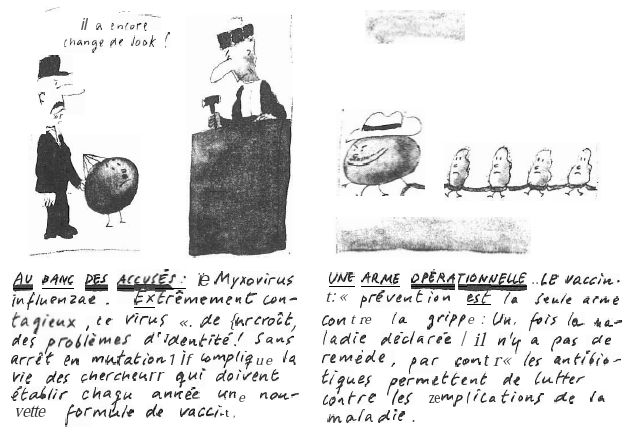 il a encore
change de look !
AU BANC DES ACCUSÉS : le Myxovirus
influenzae. Extrêmement con-
tagieux, ce virus «. de surcroît,
des problèmes d'identité! Sans
arrêt en mutation il complique la
vie des chercheurs qui doivent
établir chaqu année une nou-
vette formule de vacci-t.
UNE ARME OPÉRATIONNELLE .. LE vaccin.
t:« prévention est la seule arme
contre la grippe : Un. fois la ma-
ladie déclarée / il n'y a pas de
remède, par contr« les antibio-
tiques permettent de lutter
contre les zemplications de sa
maladie.